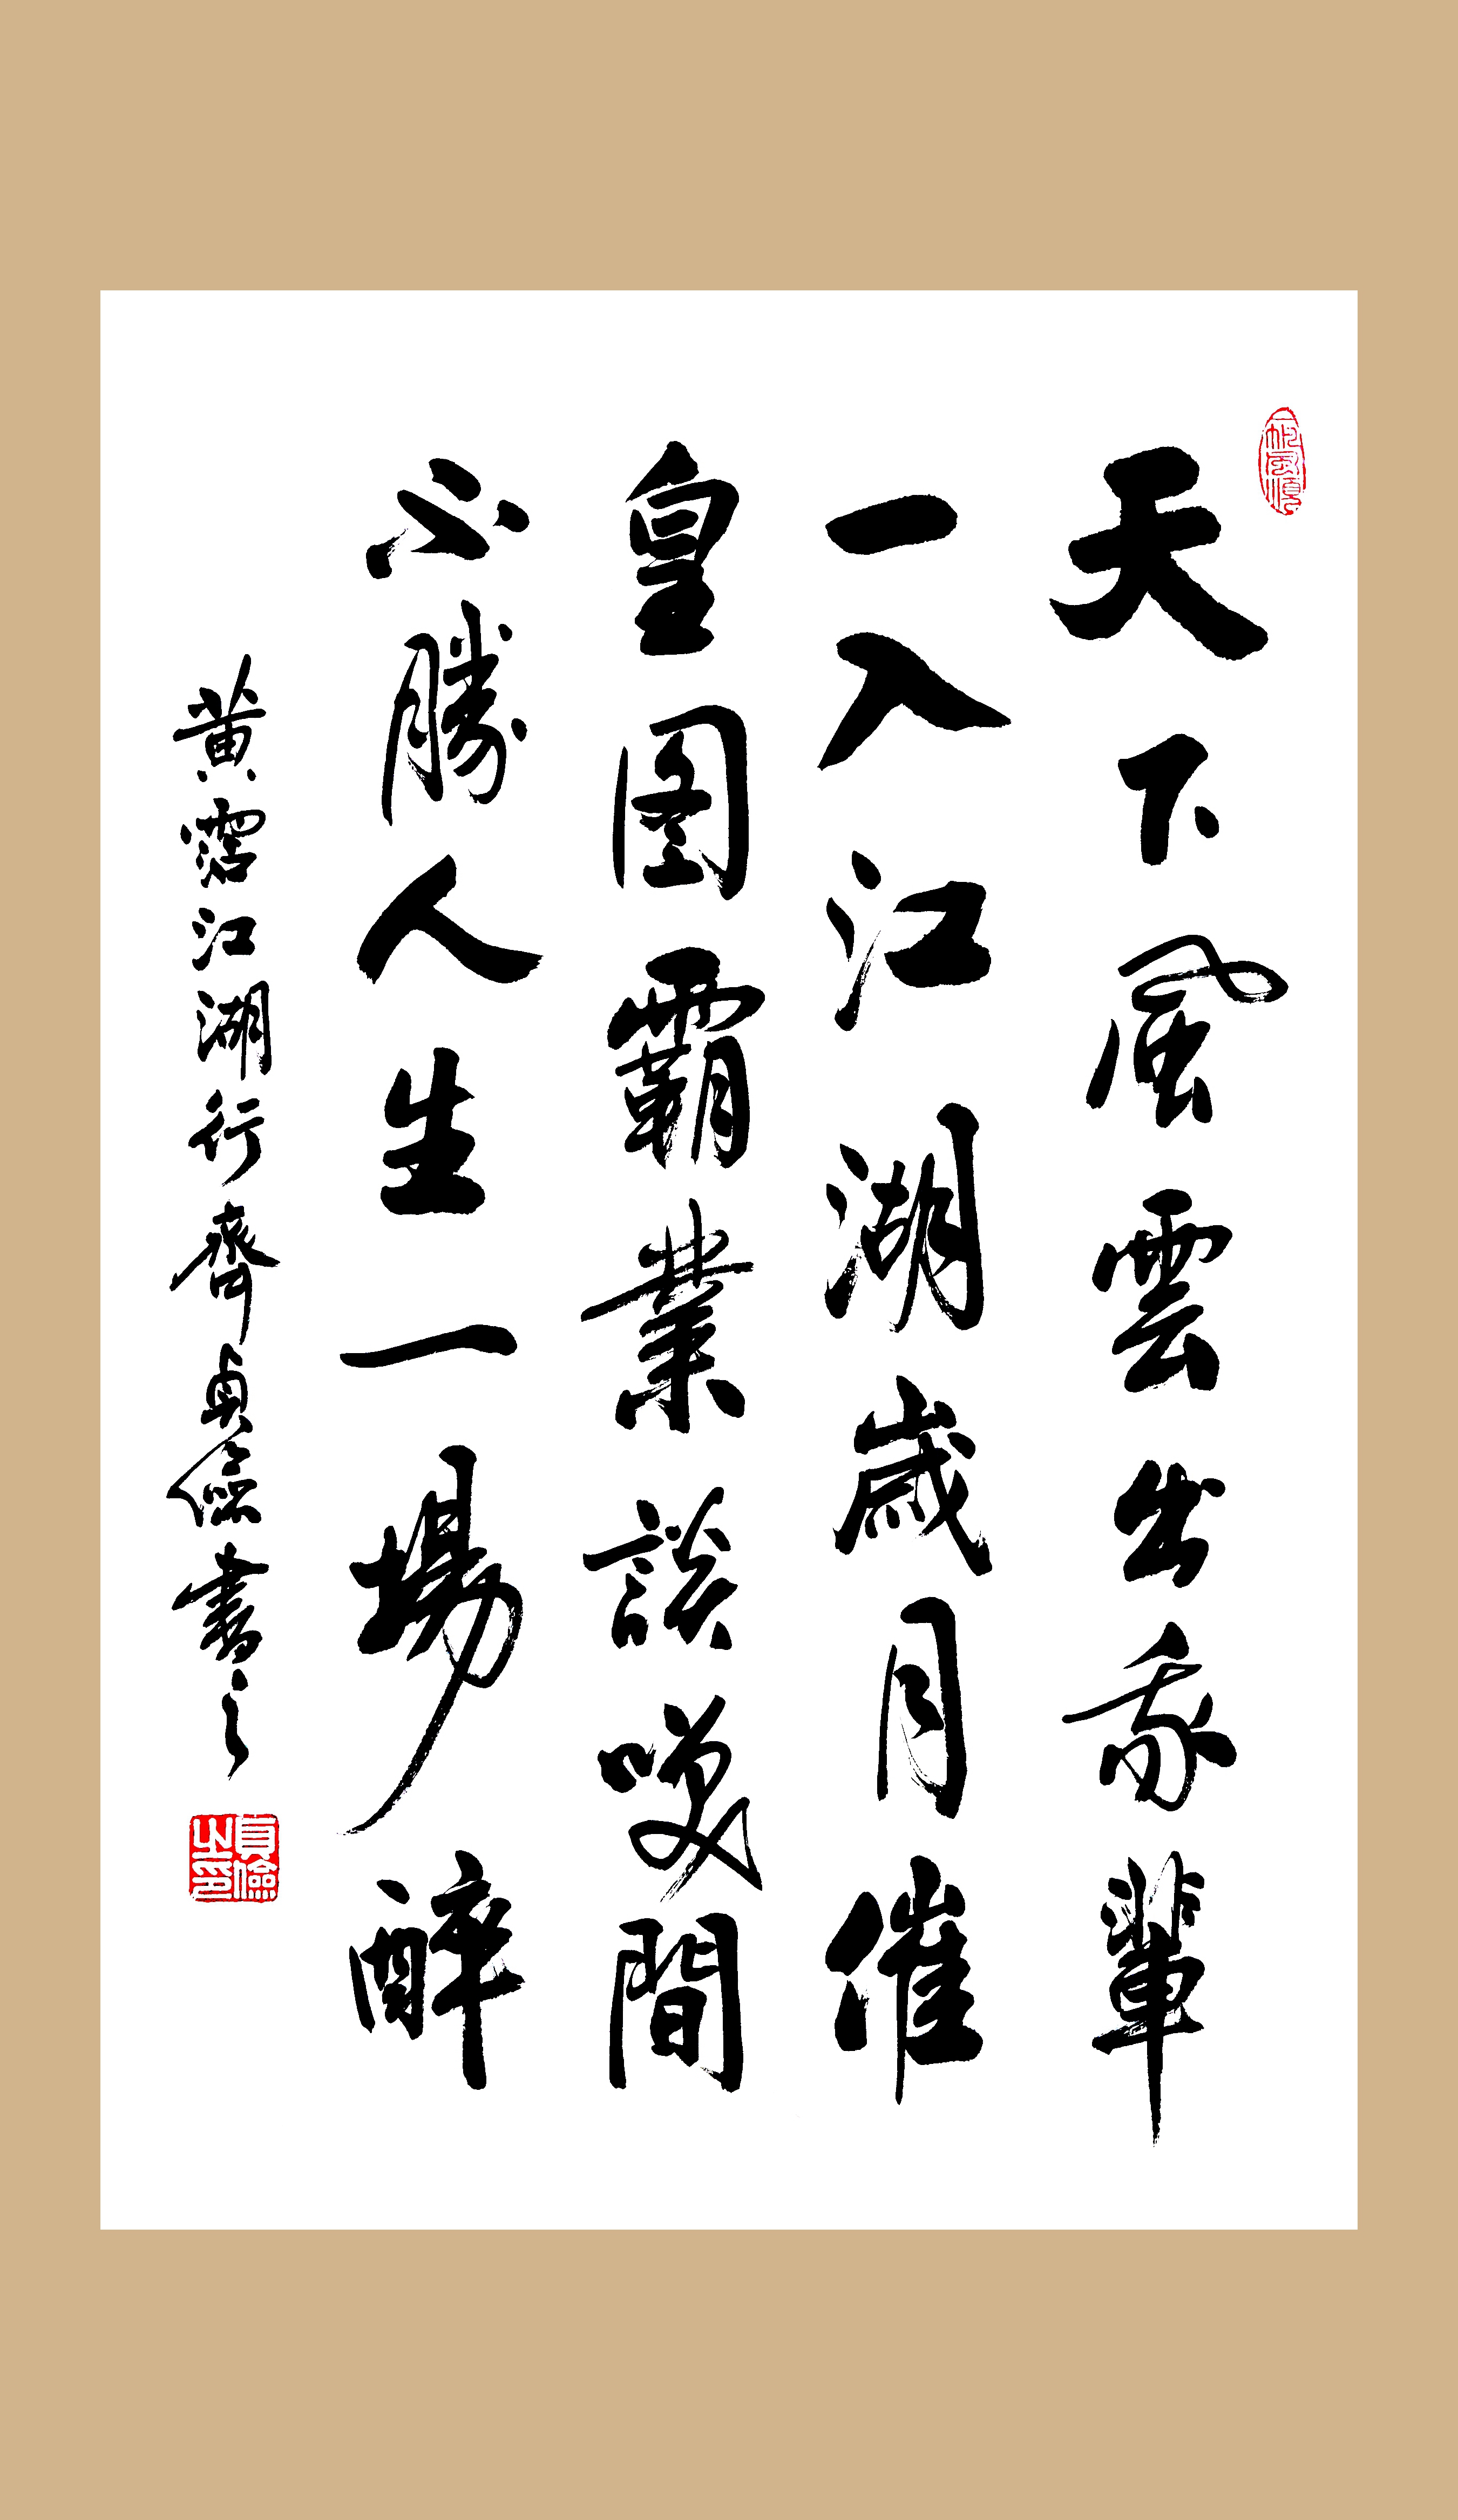 一帆風順
天下風雲出我輩
一入江湖歲月催
皇圖霸業談咲間
不勝人生一場醉
黃霑江湖行書